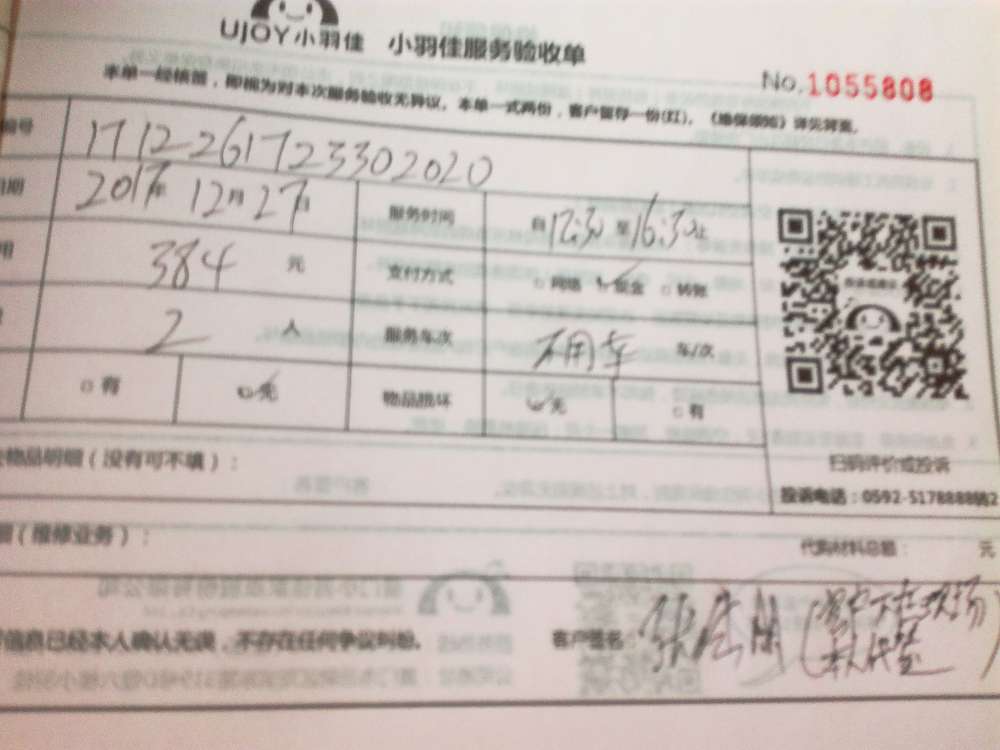 UJOY小羽佳 小羽佳服务验收单
No.1055808
本单一经核签,即视为对本次服务验收无异议。本单一式两份,客户留存一份(红)。《维保须知》详见背面。
编号 1712261723302020
日期 2017年 12月 27日 服务时间 自12:30 至16:30止
用 384 元 支付方式 网络 现金 转账
2 人 服务车次 不用车 车/次
有 无 物品损坏 无 有
物品明细(没有可不填):
扫码评价或投诉
投诉电话:0592-5178888转2
(维修业务): 代购材料总额: 元
信息已经本人确认无误,不存在任何争议纠纷。 客户签名: (客户不在现场
本人代签)